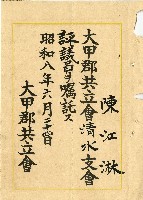 陳江淋
大甲郡共立會清水支會
評議員ヲ囑託ス
昭和八年六月二十四日
大甲郡共立會